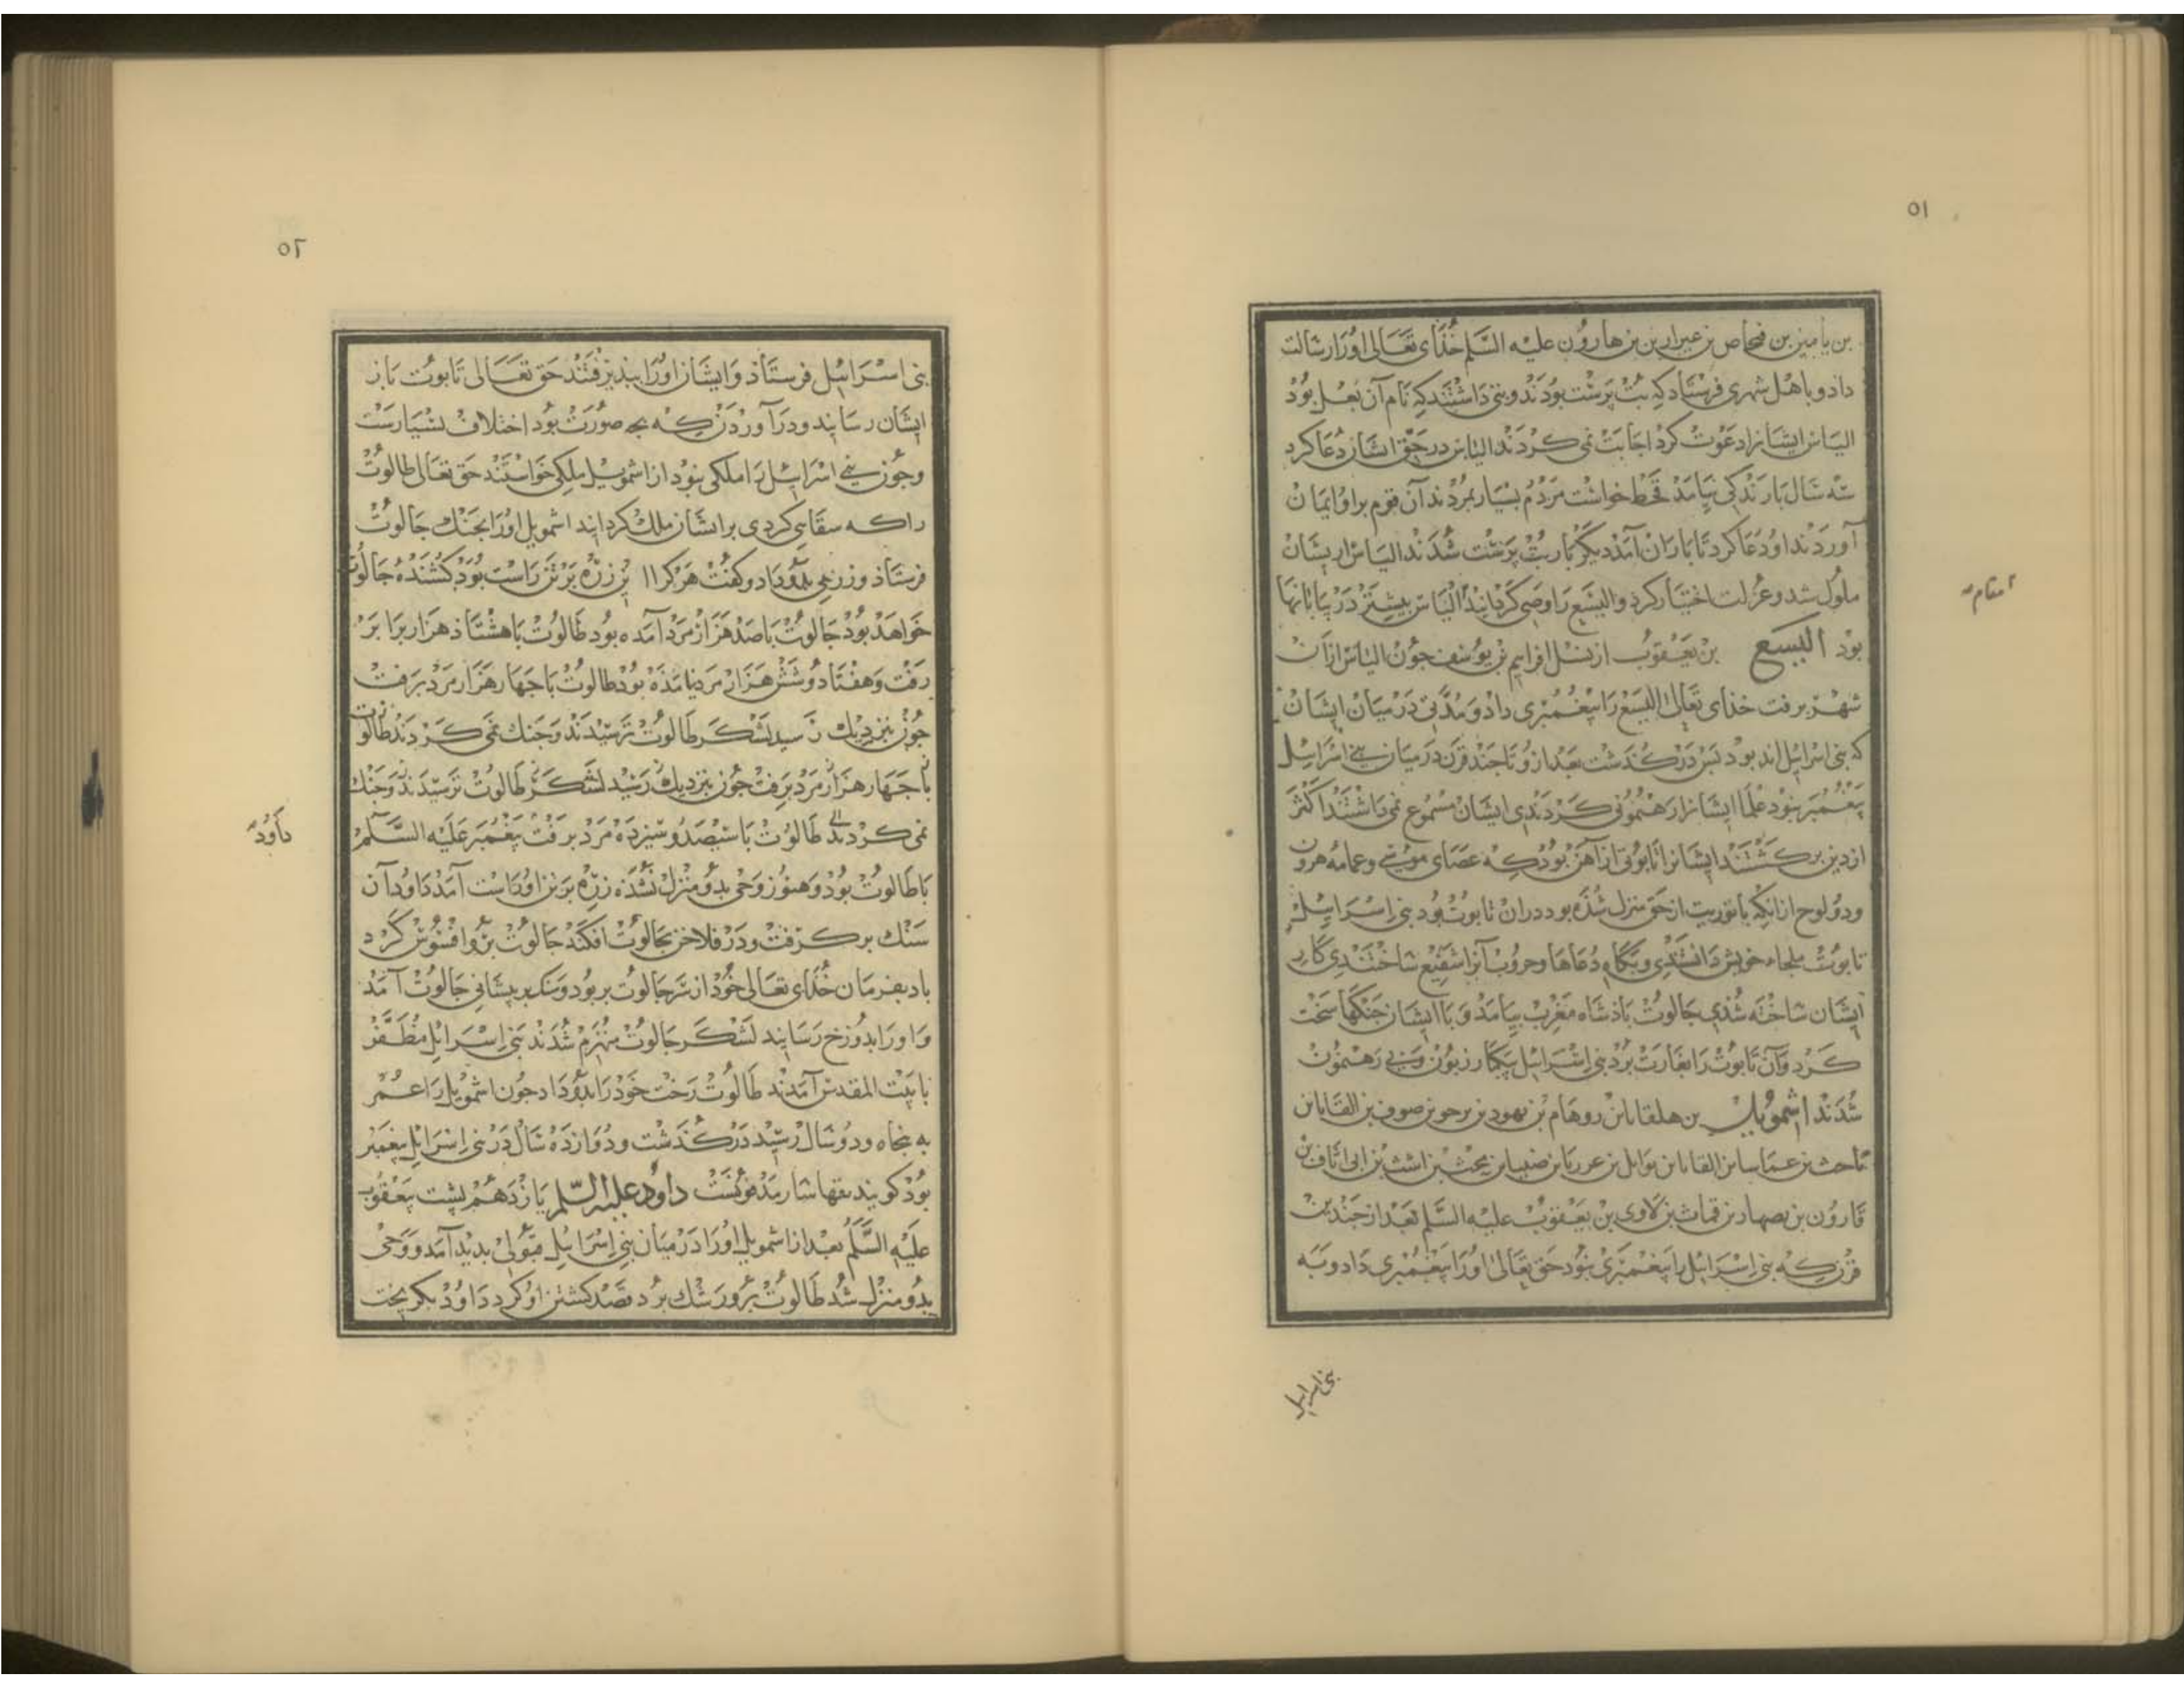 ٥١
بن یامین بن فنحاص بن عیزار بن هارون علیه السّلم خذای تعالی اورا رسالت
داد و باهل شهری فرستاد که بت پرست بودند و بتی داشتند که نام آن بعل بود
الیاس ایشانرا دعوت کرد اجابت نمی کردند الیاس در حق ایشان دعا کرد
سه سال بارندکی نیامد قحط خواست مردم بسیار بمردند آن قوم براو ایمان
آوردند او دعا کرد تا باران آمد دیکر بار بت پرست شدند الیاس از یشان
ملول شد و عزلت اختیار کرد و الیسع را وصی کردانید الیاس بیشتر در بیابانها
بود الیسع بن یعقوب از نسل افراییم بن یوسف جون الیاس از آن
شهر برفت خذای تعالی الیسع را پیغمبری داد و مدّتی در میان ایشان
که بنی اسرایل اند بود بس در کذشت بعد ازو تا جند قرن در میان بنی اسرایل
پیغمبر نبود علما ایشانرا رهنمونی کردندی ایشان مسموع نمی داشتند اکثر
از دین برکشتند ایشانرا تابوتی از آهن بود که عصای موسی و عمامه هرون
و دو لوح از انکه با توریت از حق منزل شذه بود دران تابوت بود بنی اسرایل
تابوت ملجاء خویش دانستندی و بکاه دعاها و حروب آنرا شفیع ساختندی کار
ایشان ساخته شذی جالوت باذشاه مغرب بیامد و با ایشان جنکها سخت
کرد و آن تابوت را بغارت برد بنی اسرایل بیکبار زبون و بی رهنمون
شدند اشمویل بن هلقابان روهام بن یهود بن یرحو بن صوف بن القابان
ماحث بن عماسا بن القابان یوایل بن عرریا بن ضفیا بن یحث بن اشث بن ابی اثاف بن
قارون بن یصهار بن قماث بن لاوی بن یعقوب علیه السّلم بعد از جندین
قرن که بنی اسرایل را پیغمبری نبود حق تعالی اورا پیغمبری داد و به
بنی اسرایل
٥٢
بنی اسرایل فرستاذ و ایشان اورا بپذیرفتند حق تعالی تابوت باز
ایشان رسانید و در آوردن که بجه صورت بود اختلاف بسیارست
و جون بنی اسرایل را ملکی نبود از اشمویل ملکی خواستند حق تعالی طالوت
را که سقایی کردی برایشان ملک کردانید اشمویل اورا بجنک جالوت
فرستاذ و زرهی بدو داد و کفت هر کرا این زره بر تن راست بود کشنده جالوت
خواهد بود جالوت با صد هزار مرد آمده بود طالوت با هشتاذ هزار برابر
رفت و هفتاد و شش هزار مرد نامذه بود طالوت با جهار هزار مرد برفت
جون بنزدیک رسید لشکر طالوت ترسیدند و جنک نمی کردند طالوت
با جهار هزار مرد برفت جون بنزدیک رسید لشکر طالوت ترسیدند و جنک
نمی کردند طالوت با سیصد و سیزده مرد برفت پیغمبر علیه السّلم
با طالوت بود و هنوز وحی بدو منزل نشده زره بر تن او راست آمد داود آن
سنک برکرفت و در فلاخن بجالوت افکند جالوت برو افسوس کرد
باد بفرمان خذای تعالی خود از سر جالوت بربود و سنک بر پیشانی جالوت آمد
و اورا بدوزخ رسانید لشکر جالوت منهزم شدند بنی اسرایل مظفّر
با بیت المقدس آمدند طالوت رخت خود را بداود داد جون اشمویل را عمر
به بنجاه و دو سال رسید در کذشت و دوازده سال در بنی اسرایل پیغمبر
بود کویند بقها سار مدفونست داود علیه السّلم یازدهم پشت یعقوب
علیه السّلم بعد از اشمویل اورا در میان بنی اسرایل قبولی بدید آمد و وحی
بدو منزل شد طالوت برو رشک برد قصد کشتن او کرد داود بکریخت
داود